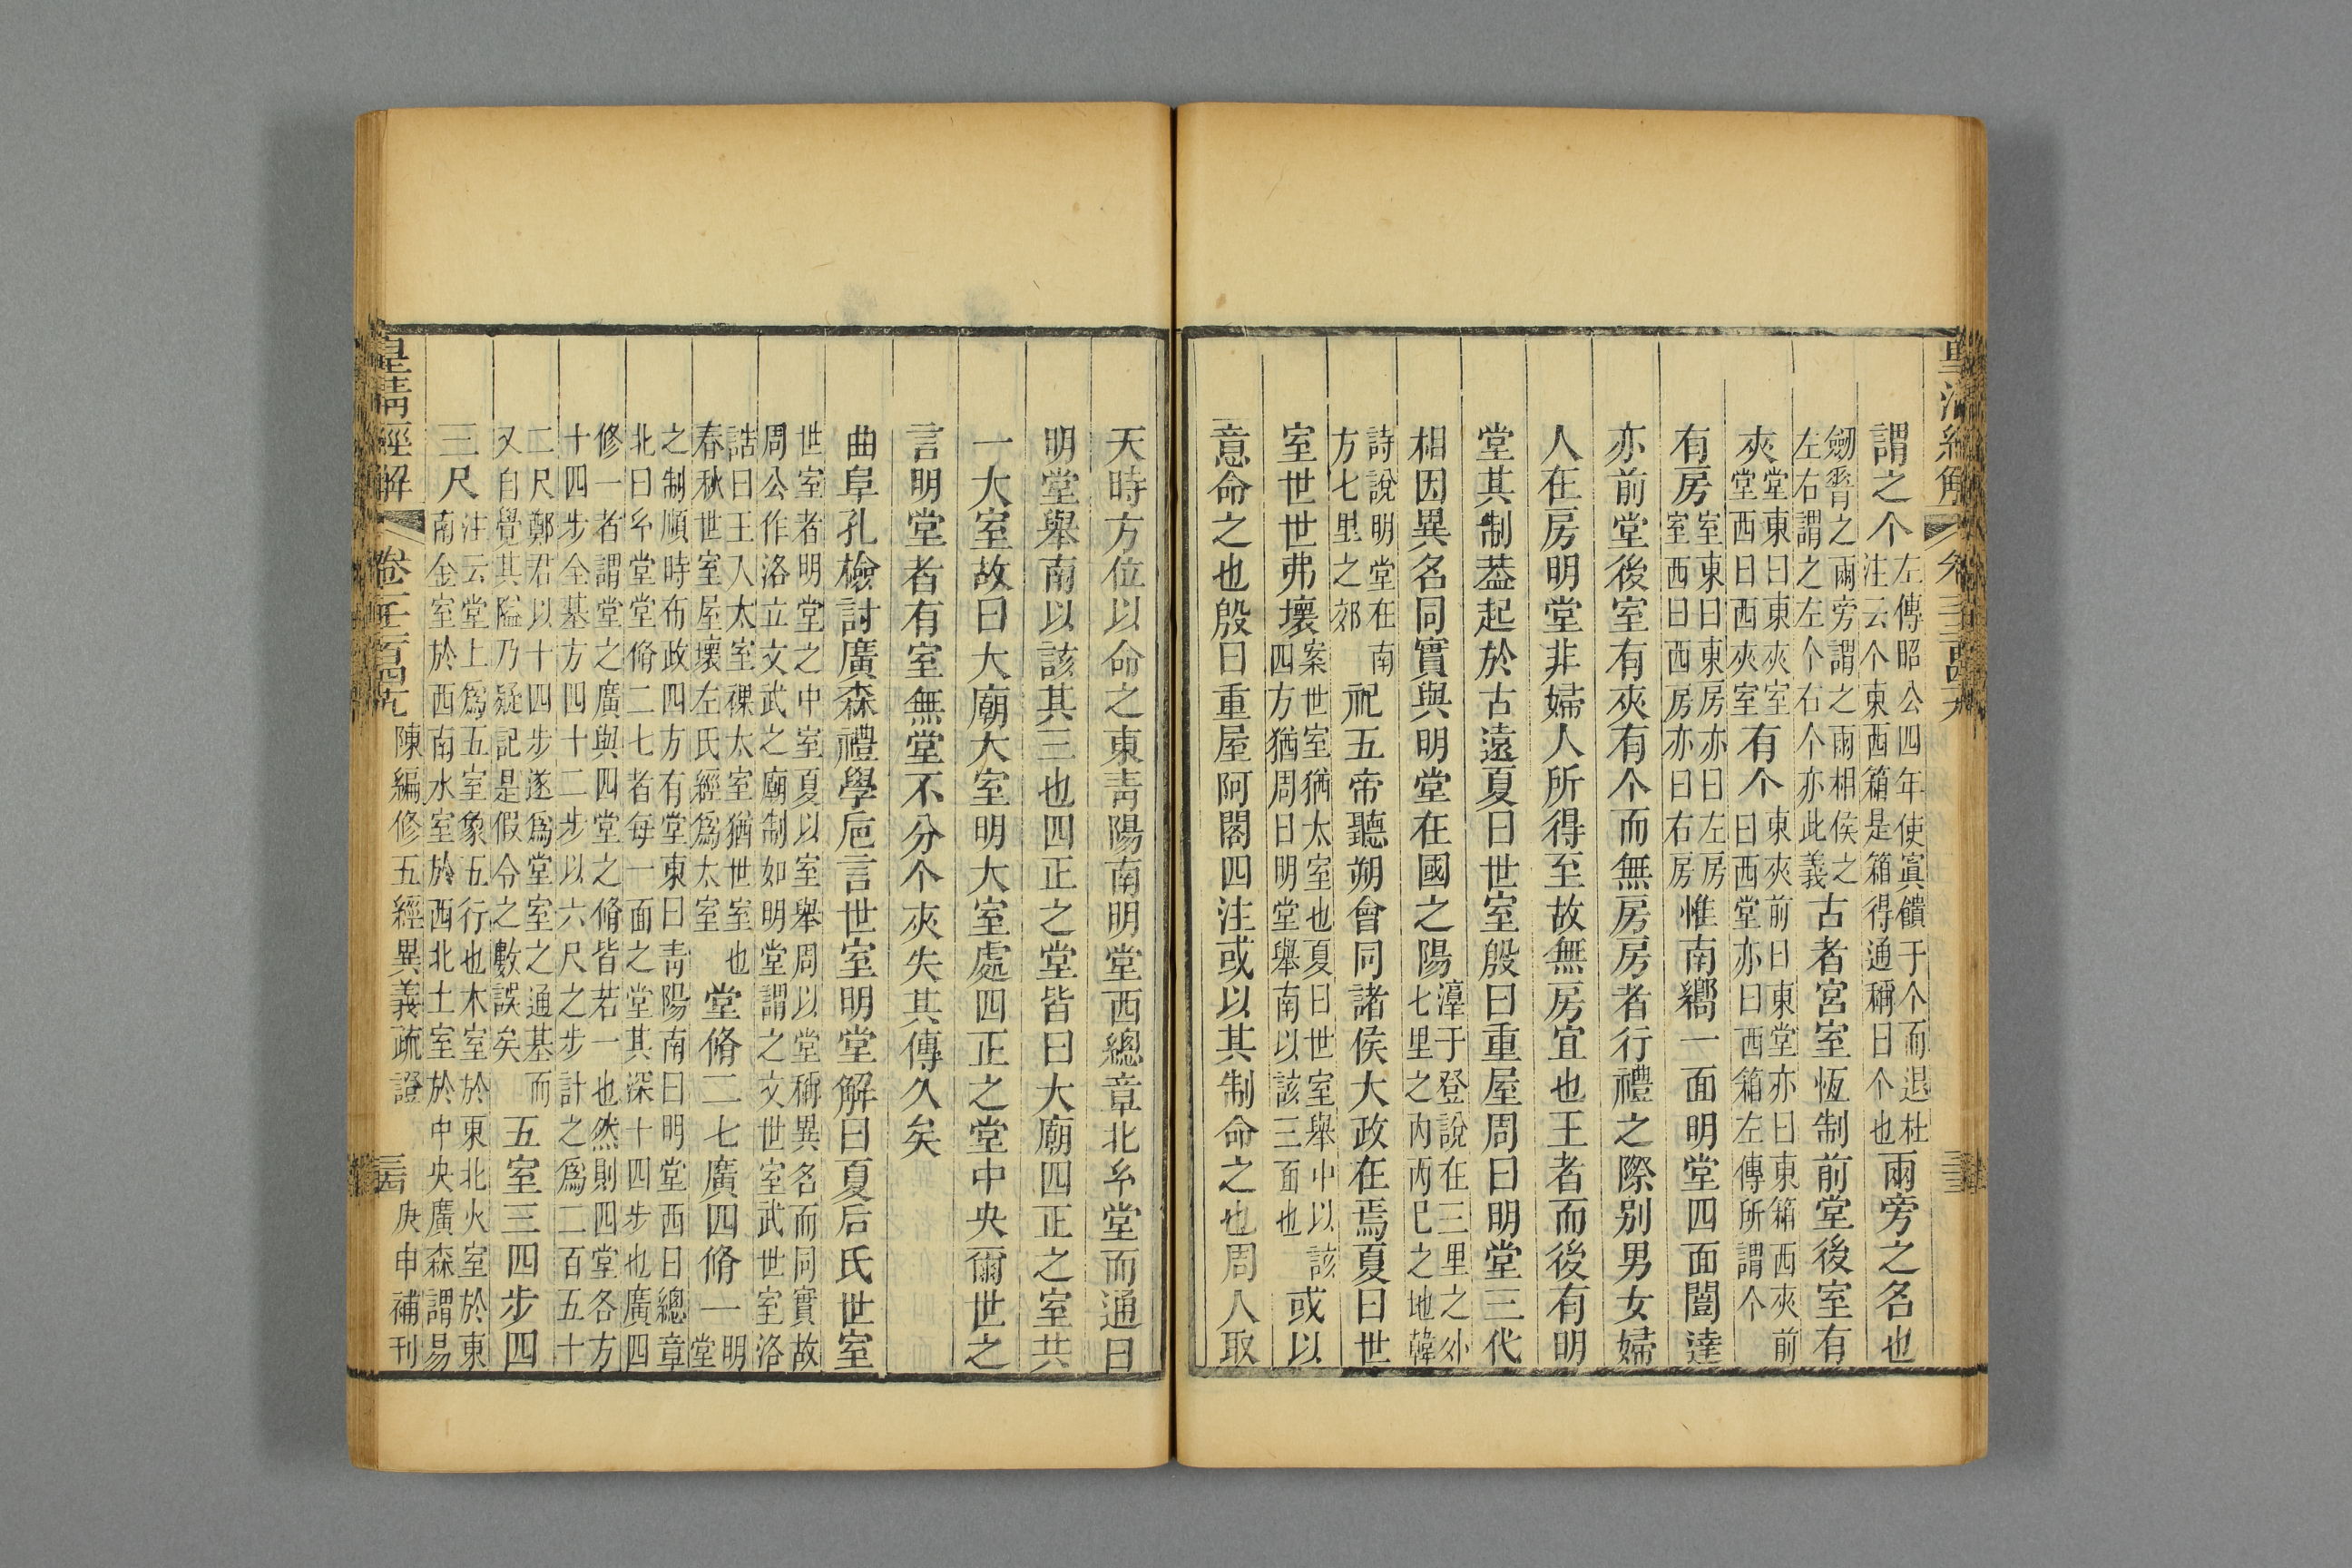 謂之个左傳昭公四年使寘饋于个而退杜注云个東西箱是箱得通稱曰个也兩旁之名也
劒脊之兩旁謂之兩相俟之左右謂之左个右个亦此義古者宮室恆制前堂後室有
夾堂東曰東夾室堂西曰西夾室有个東夾前曰東堂亦曰東箱西夾前曰西堂亦曰西箱左傳所謂个
有房室東曰東房亦曰左房室西曰西房亦曰右房惟南嚮一面明堂四面闓達
亦前堂後室有夾有个而無房房者行禮之際别男女婦
人在房明堂非婦人所得至故無房宜也王者而後有明
堂其制葢起於古遠夏曰世室殷曰重屋周曰明堂三代
相因異名同實與明堂在國之陽漳于登說在三里之外七里之內丙巳之地韓
詩說明堂在南方七里之郊祀五帝聽朔會同諸侯大政在焉夏曰世
室世世弗壞案世室猶太室也夏曰世室舉中以該四方猶周曰明堂舉南以該三面也或以
意命之也殷曰重屋阿閣四注或以其制命之也周人取
天時方位以命之東靑陽南明堂西總章北𤣥堂而通曰
明堂舉南以該其三也四正之堂皆曰大廟四正之室共
一大室故曰大廟大室明大室處四正之堂中央爾世之
言明堂者有室無堂不分个夾失其傳久矣
曲阜孔檢討廣森禮學巵言世室明堂解曰夏后氏世室
世室者明堂之中室夏以室舉周以堂稱異名而同實故周公作洛立文武之廟制如明堂謂之文世室武世室洛
誥曰王入太室祼太室猶世室也春秋世室屋壞左氏經爲太室堂脩二七廣四脩一明堂
之制順時布政四方有堂東曰靑陽南曰明堂西曰總章北曰𤣥堂堂脩二七者每一面之堂其深十四步也廣四
修一者謂堂之廣與四堂之脩皆若一也然則四堂各方十四步全基方四十二步以六尺之步計之爲二百五十
二尺鄭君以十四步遂爲堂室之通基而又自覺其隘乃疑記是假令之數誤矣五室三四步四
三尺注云堂上爲五室象五行也木室於東北火室於東南金室於西南水室於西北土室於中央廣森謂易
皇清經解 卷一千二百四九 陳編修五經異義疏證 三四 庚申補刊